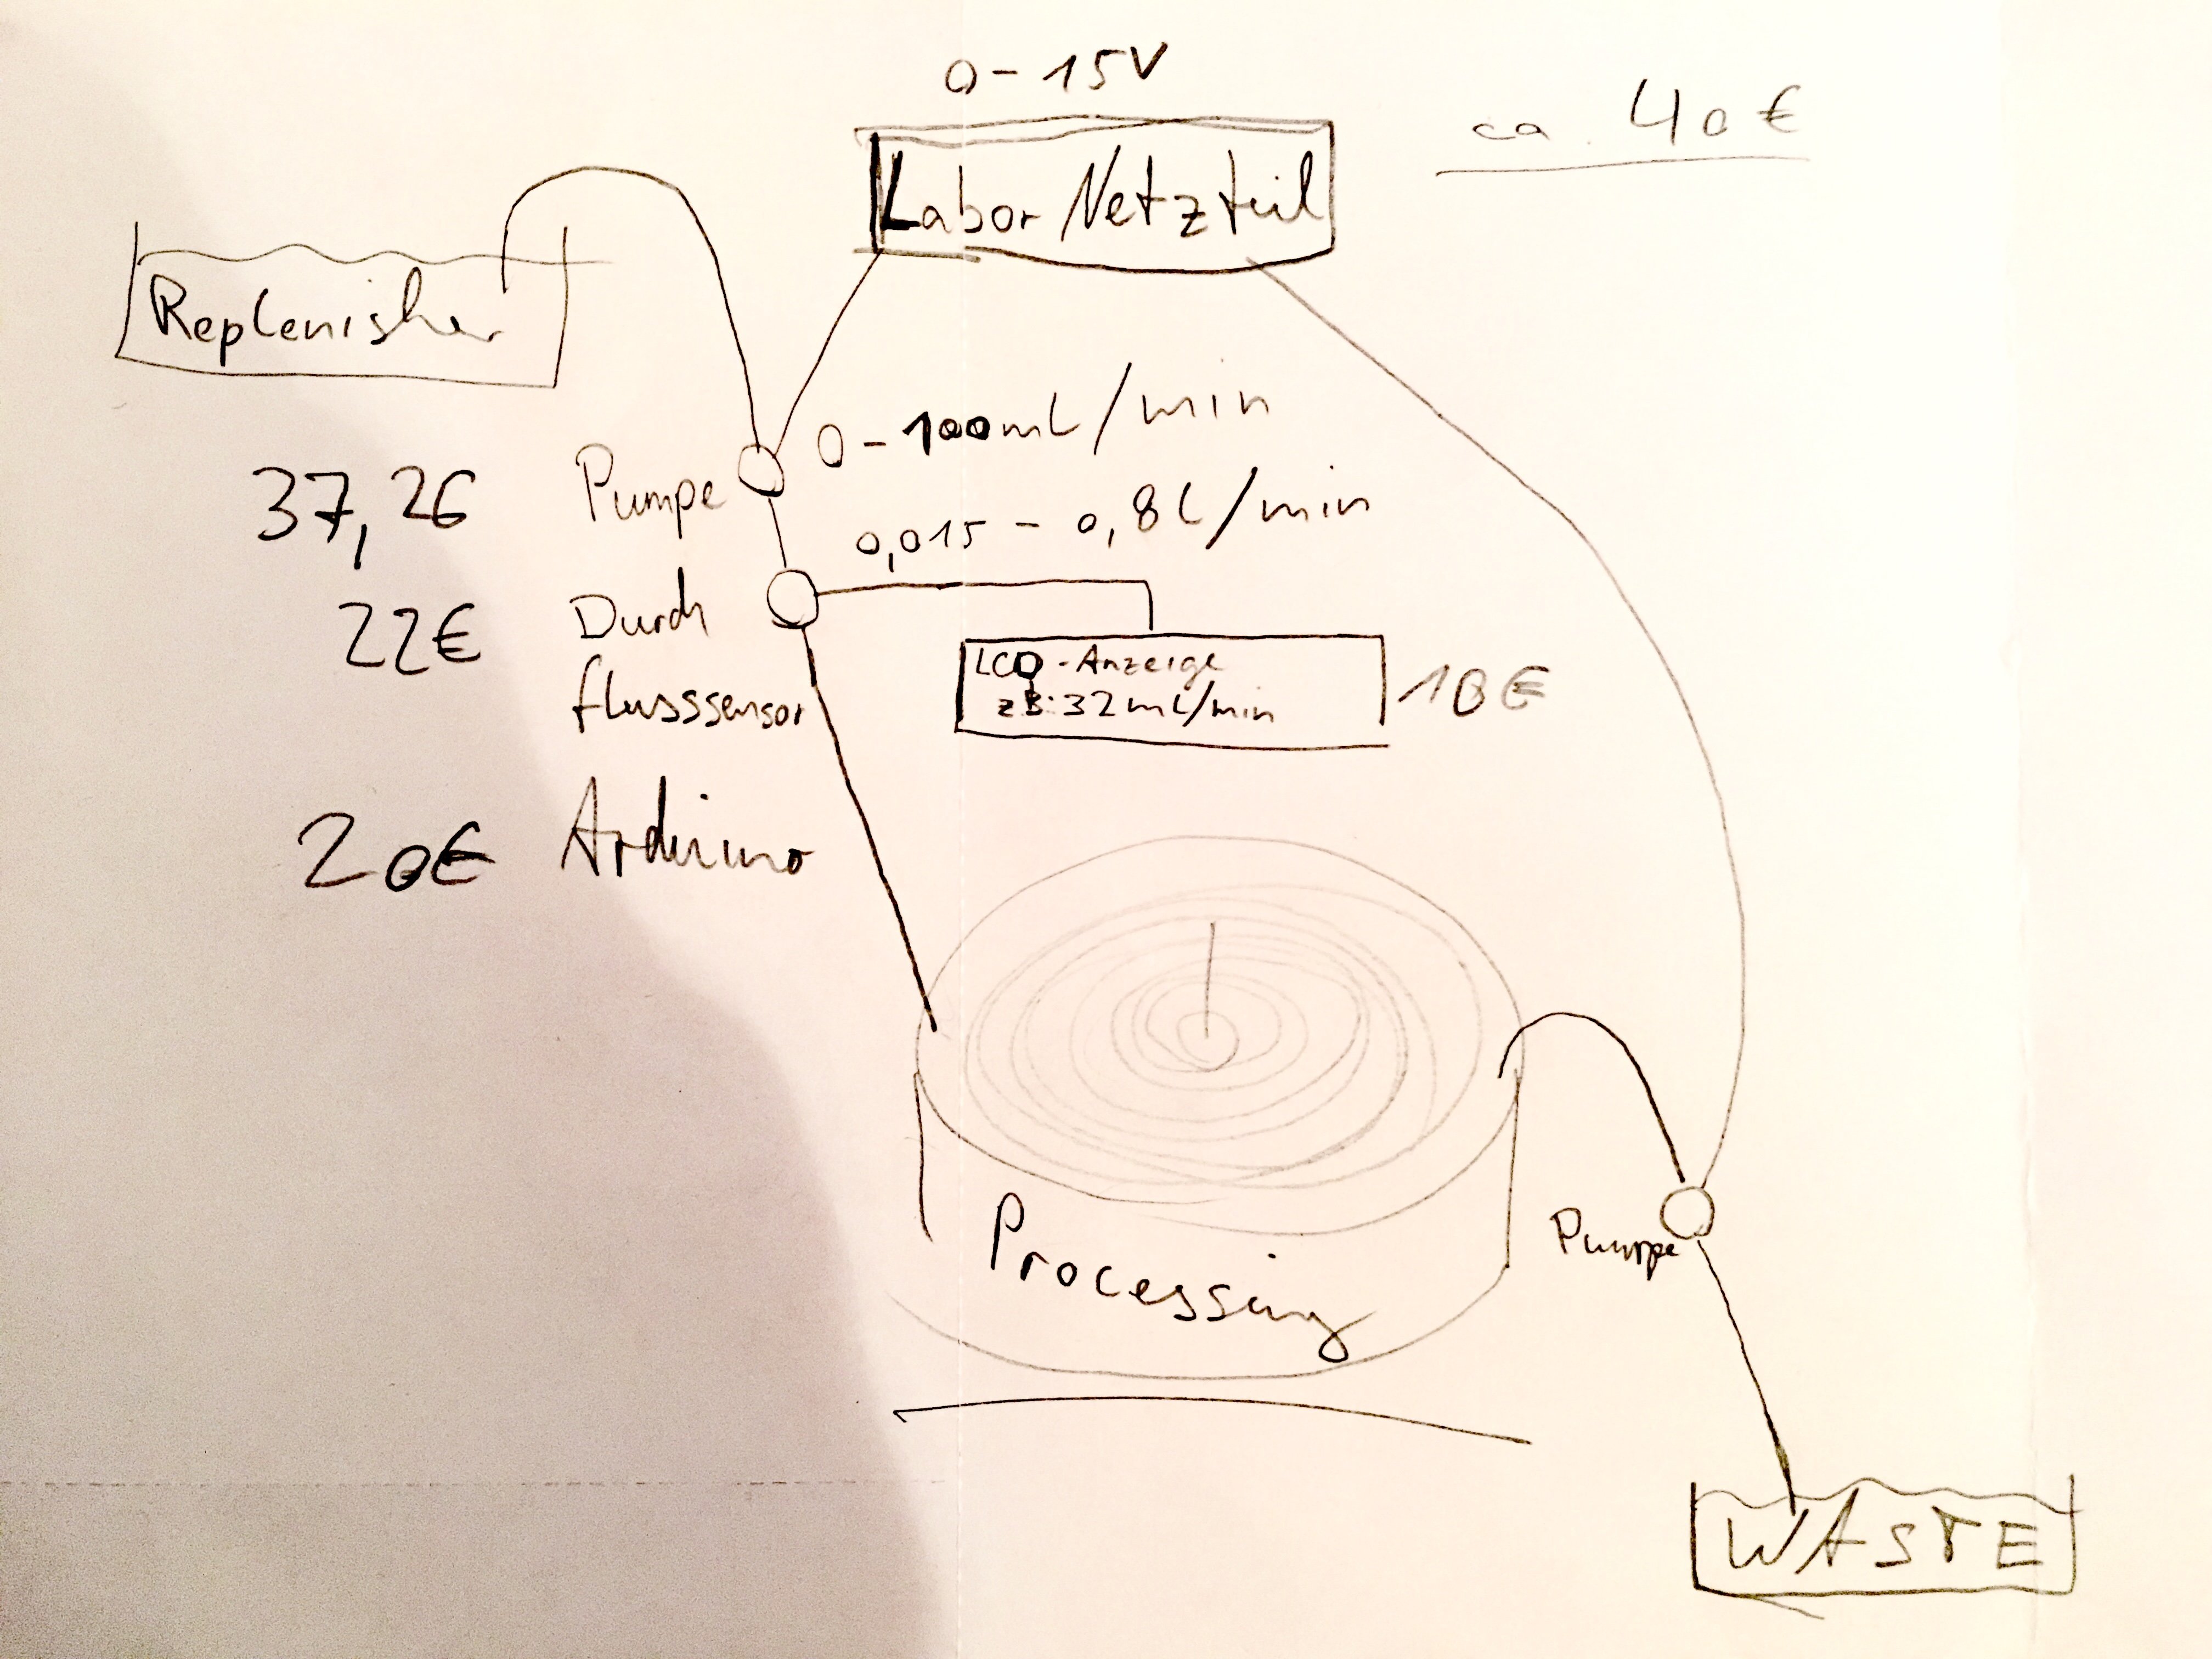 0-15V
ca. 40€
Labor Netzteil
Replenisher
0-100mL/min
37,26
Pumpe
0,015 - 0,8L/min
22€
Durch
flusssensor
LCD-Anzeige
zB: 32mL/min
20€
Arduino
Processing
Pumpe
WASTE